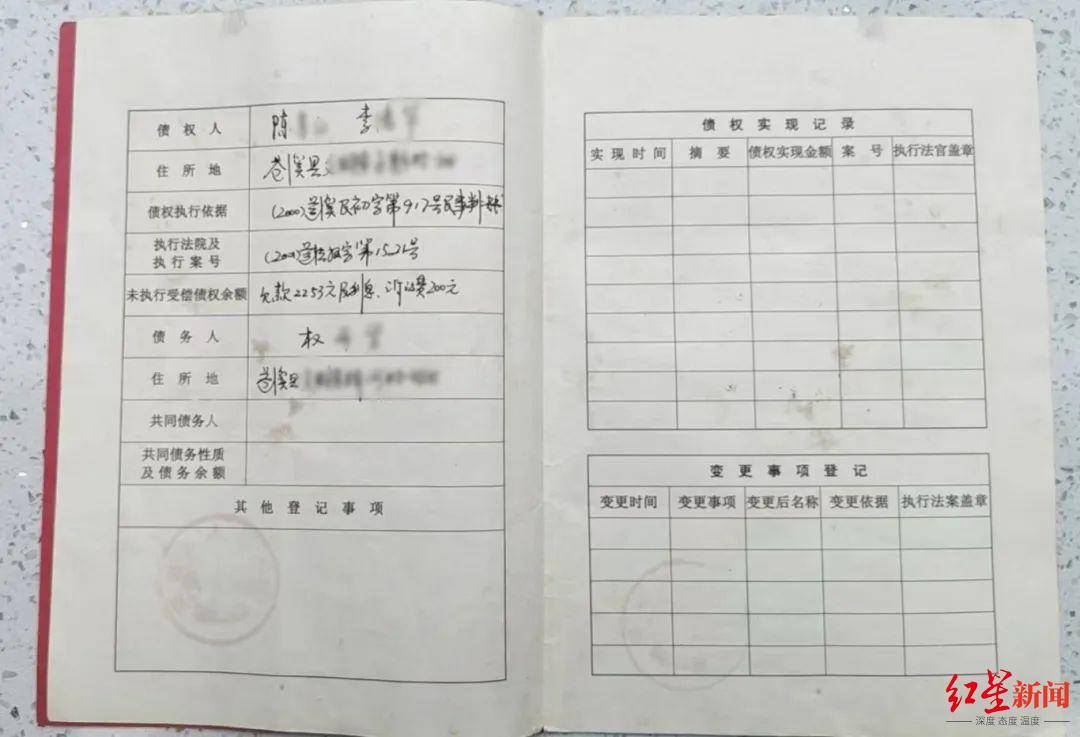 债权人 陈 李
住所地 苍溪县
债权执行依据 (2000)苍溪民初字第917号民事判决
执行法院及
执行案号 字第15-21号
未执行受偿债权余额 欠款2253元及利息、诉讼费200元
债务人 权
住所地 苍溪县
共同债务人
共同债务性质
及债务余额
其他登记事项
债权实现记录
实现时间 摘要 债权实现金额 案号 执行法官盖章
变更事项登记
变更时间 变更事项 变更后名称 变更依据 执行法案盖章
红星新闻
深度 态度 温度